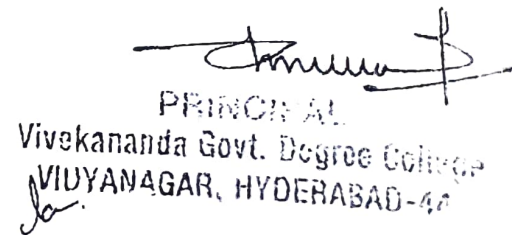 PRINCIPAL
Vivekananda Govt. Degree College
VIDYANAGAR, HYDERABAD-44